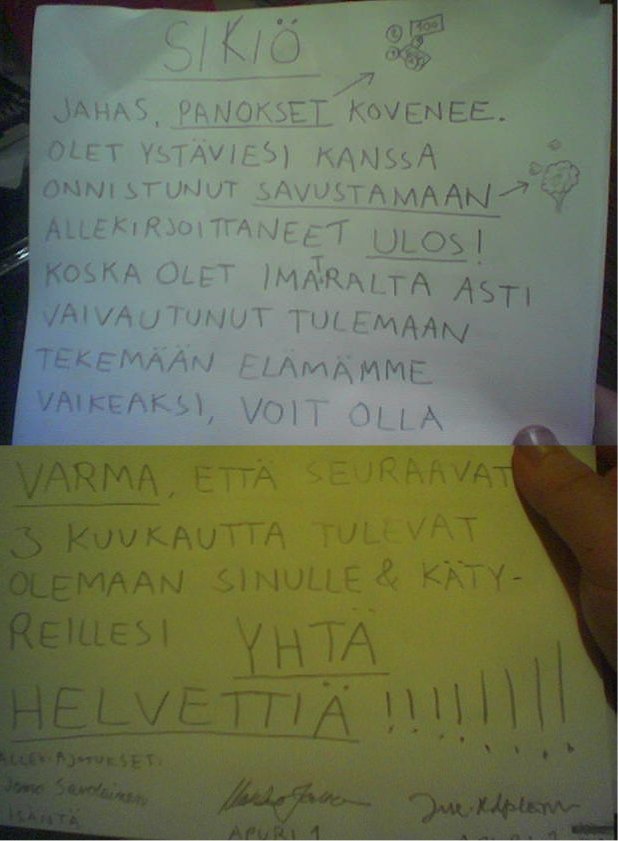 SIKIÖ
100
JAHAS, PANOKSET KOVENEE.
OLET YSTÄVIESI KANSSA
ONNISTUNUT SAVUSTAMAAN
ALLEKIRJOITTANEET ULOS!
KOSKA OLET IMATRALTA ASTI
VAIVAUTUNUT TULEMAAN
TEKEMÄÄN ELÄMÄMME
VAIKEAKSI, VOIT OLLA
VARMA, ETTÄ SEURAAVAT
3 KUUKAUTTA TULEVAT
OLEMAAN SINULLE & KÄTY-
REILLESI YHTÄ
HELVETTIÄ !!!!!!!!
ISÄNTÄ APURI 1